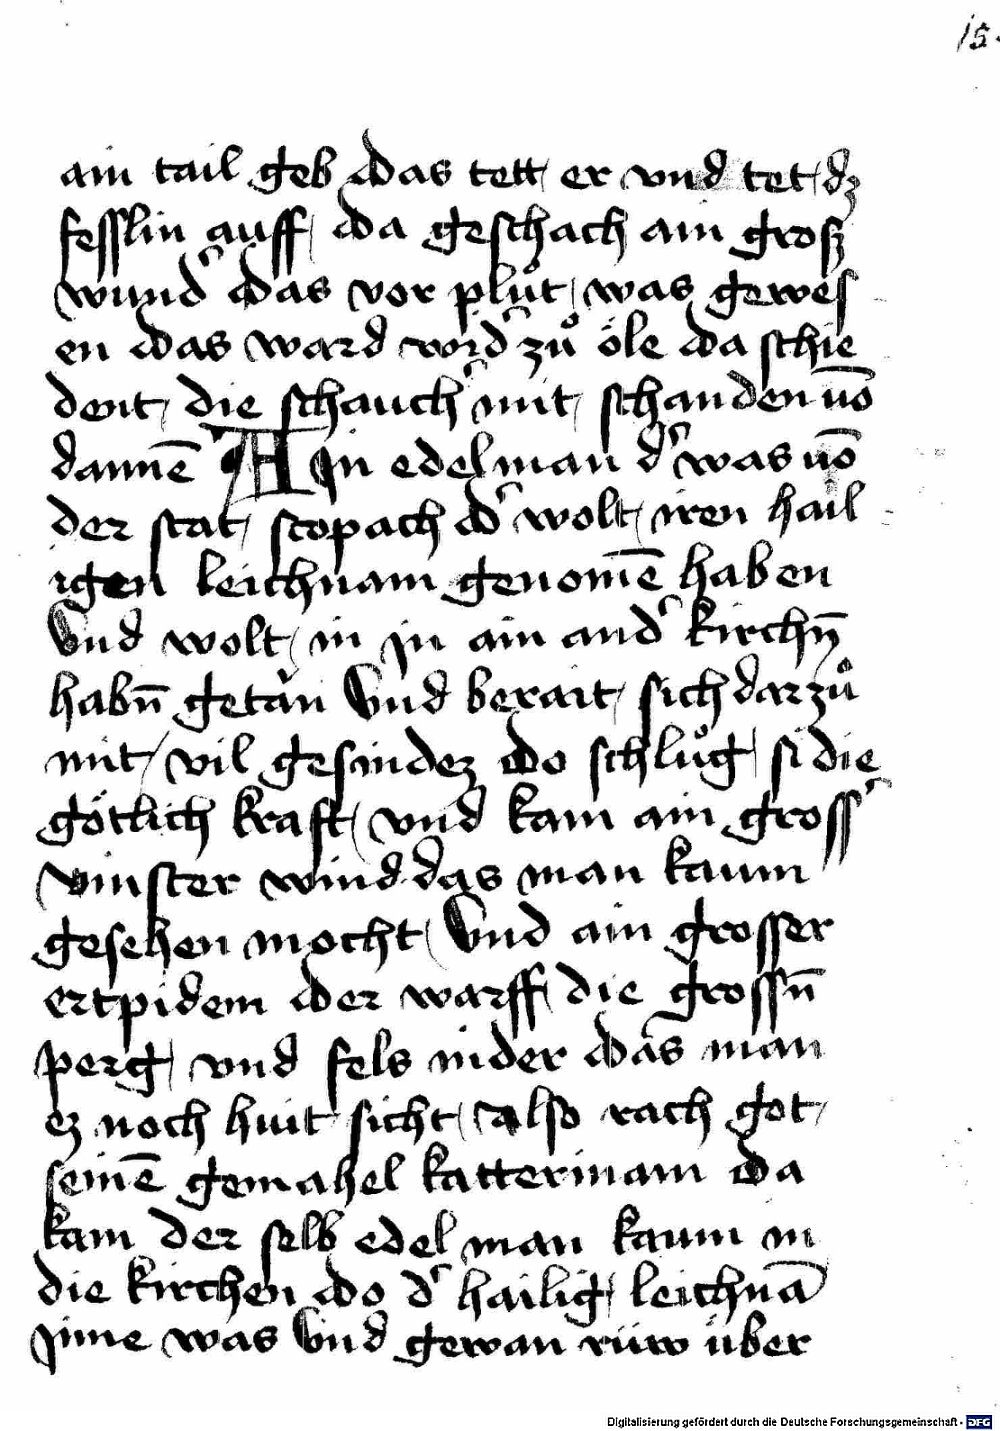 15.
ain tail geb das tett er vnd tet dz
fesslin auff da geschach ain grosz
wund᾽ das vor plůt was gewes
en das ward wid᾽ zů öle da schie
dent die schauch᾽ mit schanden uō
dannē AIn edelman d᾽ was uō
der stat stopach d᾽ wolt iren hail
igen leichnam genomē haben
Vnd wolt in jn ain and᾽ kirchn̄
habn̄ getan Vnd berait sich darzů
mit vil gesindez do schlůg si die
götlich kraft vnd kam ain gross᾽
vinster wind das man kaum
gesehen mocht Vnd ain grosser
ertpidem der warff die grossn̄
perg vnd fels nider das man
ez noch huit sicht also rach got
seinē gemahel katterinam da
kam der selb edel man kaum in
die kirchen do d᾽ hailig leichnā
jnne was Vnd gewan rüw über
Digitalisierung gefördert durch die Deutsche Forschungsgemeinschaft - DFG